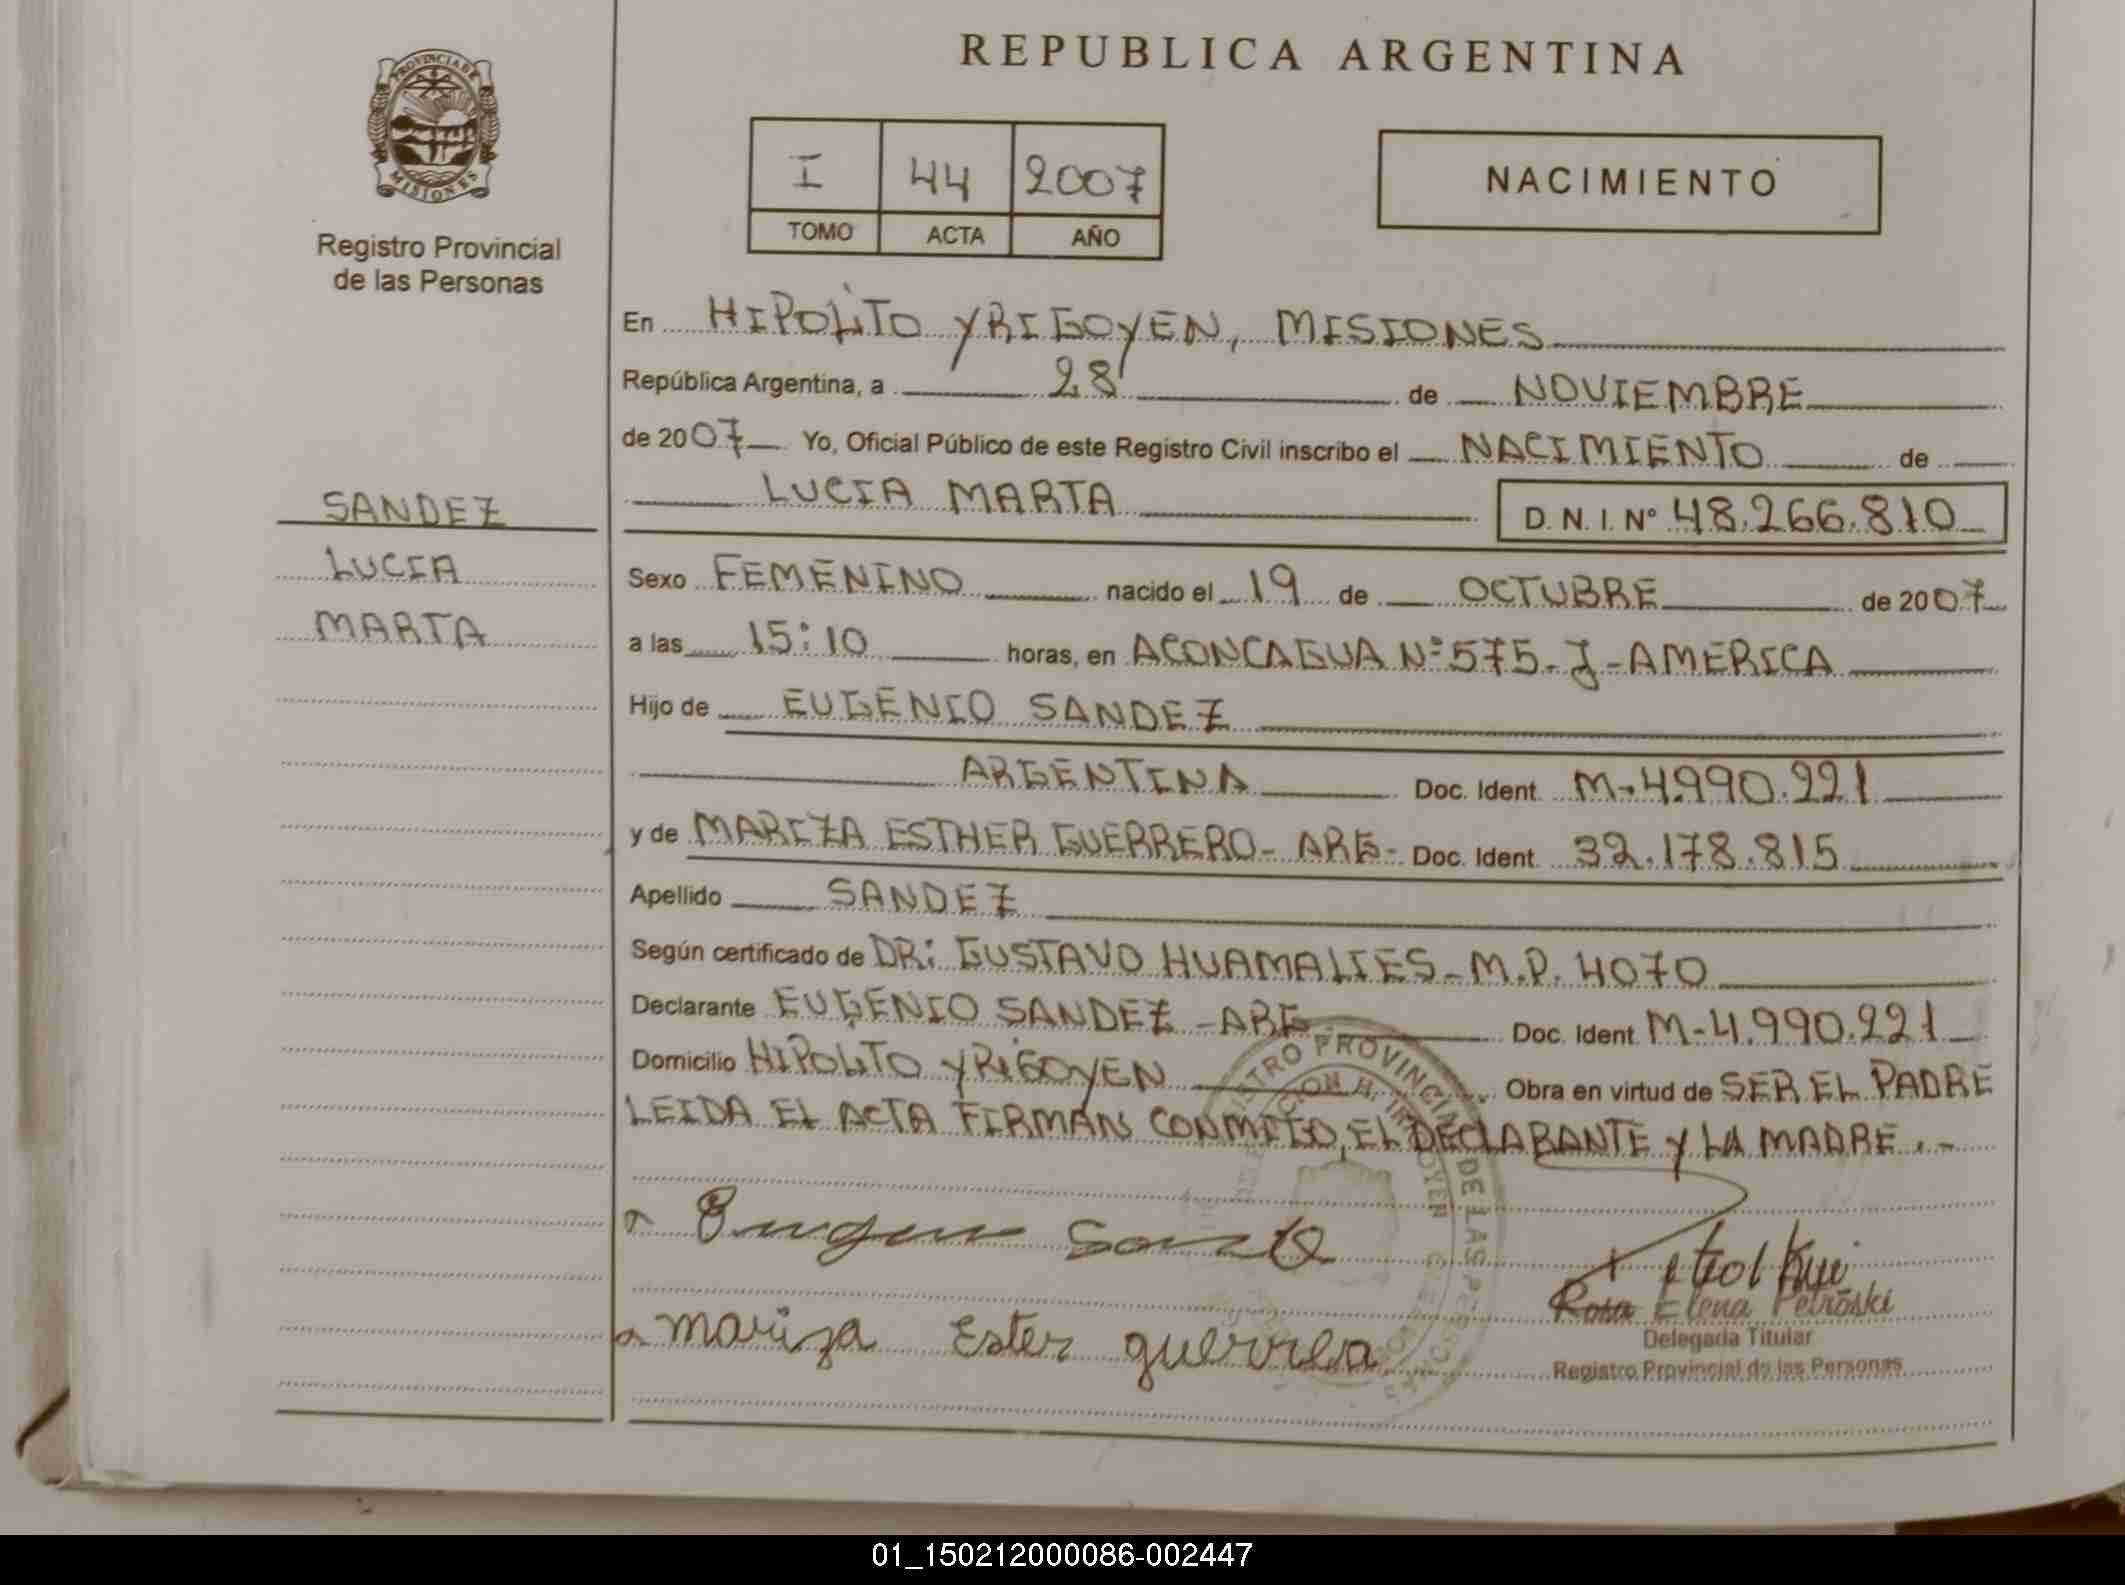 PROVINCIA DE
MISIONES
Registro Provincial
de las Personas
SANDEZ
LUCIA
MARTA
REPUBLICA ARGENTINA
I 44 2007
TOMO ACTA AÑO
NACIMIENTO
En HIPOLITO YRIGOYEN, MISIONES
República Argentina, a 28 de NOVIEMBRE
de 2007 Yo, Oficial Público de este Registro Civil inscribo el NACIMIENTO de
LUCIA MARTA D. N. I. Nº 48.266.810
Sexo FEMENINO nacido el 19 de OCTUBRE de 2007
a las 15:10 horas, en ACONCAGUA Nº 575-J-AMERICA
Hijo de EUGENIO SANDEZ
ARGENTINA Doc. Ident. M-4.990.221
y de MARIZA ESTHER GUERRERO- ARG- Doc. Ident. 32.178.815
Apellido SANDEZ
Según certificado de DR: GUSTAVO HUAMALIES-M.P. 4070
Declarante EUGENIO SANDEZ -ARG Doc. Ident. M-4.990.221
Domicilio HIPOLITO YRIGOYEN Obra en virtud de SER EL PADRE
LEIDA EL ACTA FIRMAN CONMIGO, EL DECLARANTE Y LA MADRE.-
REGISTRO PROVINCIAL DE LAS PERSONAS
Mariza Ester guerrera
Rosa Elena Petroski
Delegada Titular
Registro Provincial de las Personas
01_150212000086-002447